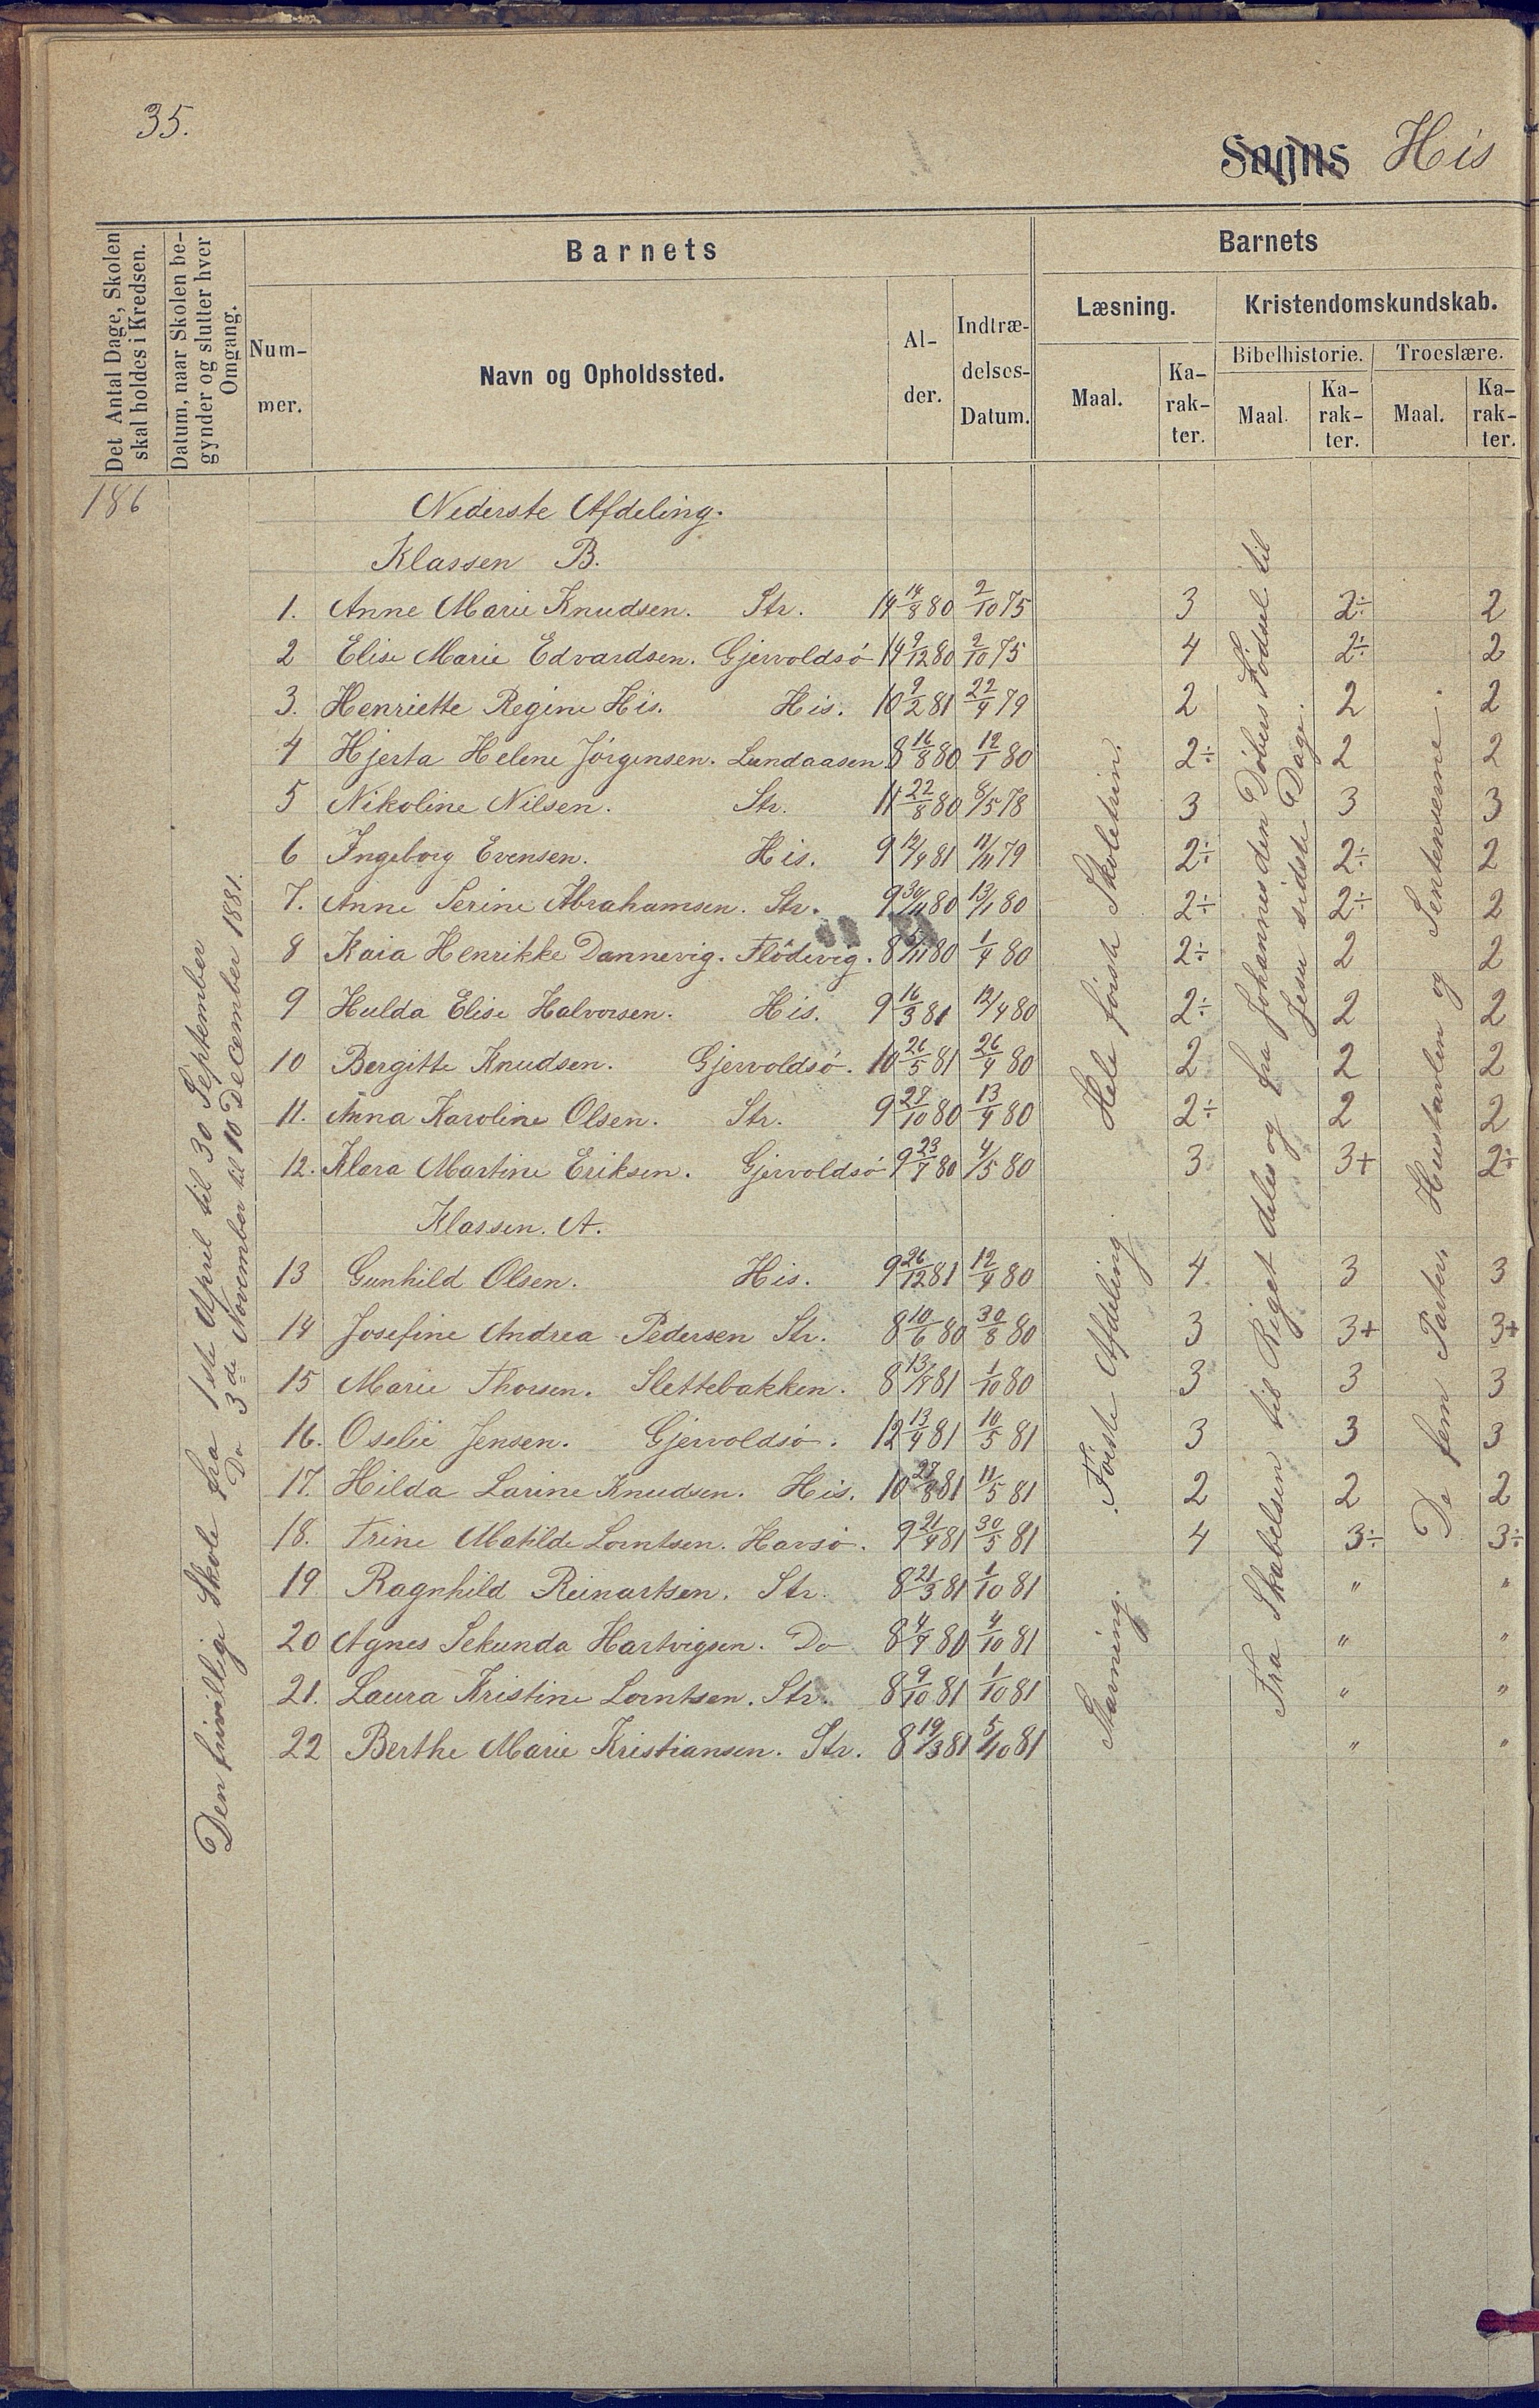 35.
Sogns His
Barnets
Barnets
Det Antal Dage, Skolen
skal holdes i Kredsen.
Datum, naar Skolen be-
gynder og slutter hver
Omgang.
Num-
mer.
Navn og Opholdssted.
Al-
der.
Indtræ-
delses-
Datum.
Læsning.
Maal.
Ka-
rak-
ter.
Kristendomskundskab.
Bibelhistorie.
Maal.
Ka-
rak-
ter.
Troeslære.
Maal.
Ka-
rak-
ter.
186
Den frivillige Skole fra 1ste April til 30 September
Do 3de November til 10 December 1881.
Nederste Afdeling.
Klassen B.
1. Anne Marie Knudsen. Str. 14 14/8 80 2/10 75 3 2÷ 2
2 Elise Marie Edvardsen. Gjervoldsö 14 9/12 80 2/10 75 4 2÷ 2
3. Henriette Regine His. His. 10 9/2 81 22/4 79 2 2 2
4 Hjerta Helene Jörgensen. Lundaasen 8 16/8 80 12/1 80 2÷ 2 2
5 Nikoline Nilsen. Str. 11 22/8 80 8/5 78 3 3 3
6 Ingeborg Evensen. His. 9 12/4 81 11/11 79 2÷ 2÷ 2
7. Anne Serine Abrahamsen. Str. 9 30/11 80 13/1 80 2÷ 2÷ 2
8 Kaia Henrikke Dannevig. Flödevig. 8 5/11 80 1/4 80 2÷ 2 2
9 Hulda Elise Halvorsen. His. 9 16/3 81 12/4 80 2÷ 2 2
10 Bergitte Knudsen. Gjervoldsö. 10 26/5 81 26/4 80 2 2 2
11. Anna Karoline Olsen. Str. 9 27/10 80 13/4 80 2÷ 2 2
12. Klara Martine Eriksen. Gjervoldsö 9 23/7 80 4/5 80 3 3+ 2÷
Klassen. A.
13 Gunhild Olsen. His. 9 26/12 81 12/4 80 4 3 3
14 Josefine Andrea Pedersen Str. 8 10/6 80 30/8 80 3 3+ 3+
15 Marie Thorsen. Slettebakken. 8 13/4 81 1/10 80 3 3 3
16. Oselie Jensen. Gjervoldsö. 12 13/4 81 10/5 81 3 3 3
17. Hilda Larine Knudsen. His. 10 27/8 81 11/5 81 2 2 2
18. Trine Matilde Lorntsen. Havsö. 9 21/4 81 30/5 81 4 3÷ 3÷
19 Ragnhild Reinartsen. Str. 8 21/3 81 1/10 81 " "
20 Agnes Sekunda Hartvigsen. Do 8 4/7 80 4/10 81 " "
21. Laura Kristine Lorntsen. Str. 8 9/10 81 1/10 81 " "
22 Berthe Marie Kristiansen. Str. 8 19/3 81 5/10 81 " "
Hele förste Skoletrin.
Förste Afdeling.
Stavning.
Fra Skabelsen til Riget deles og fra Johannes den Döbers Födsel til
Jesu sidste Dage.
De fem Parter, Hustavlen og Sentenserne.